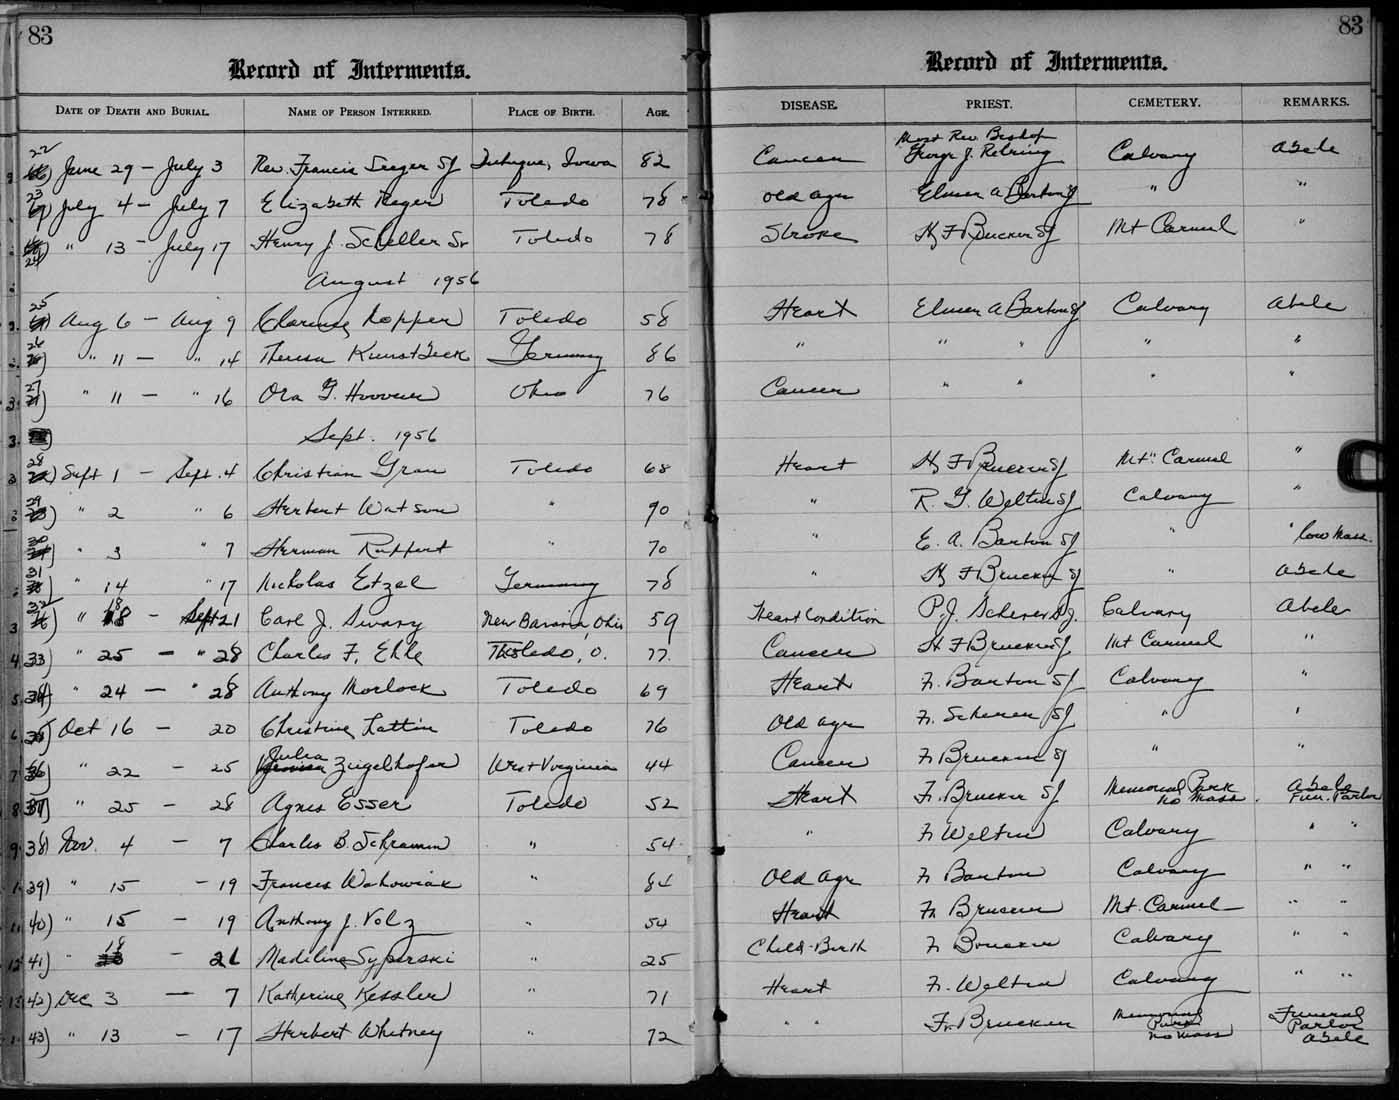 83
Record of Interments.
DATE OF DEATH AND BURIAL. NAME OF PERSON INTERRED. PLACE OF BIRTH. AGE.
22 June 29 - July 3 Rev. Francis Seeger SJ Dubuque, Iowa 82
23 July 4 - July 7 Elizabeth Meger Toledo 78
24 " 13 - July 17 Henry J. Scheller Sr Toledo 78
August 1956
25 Aug 6 - Aug 9 Clarence Hopper Toledo 58
26 " 11 - " 14 Theresa Kunstbeck Germany 86
27 " 11 - " 16 Ora G. Hoover Ohio 76
Sept. 1956
28 Sept 1 - Sept. 4 Christian Grau Toledo 68
29 " 2 " 6 Herbert Watson " 90
30 " 3 " 7 Herman Ruppert " 70
31 " 14 " 17 Nicholas Etzel Germany 78
32 " 18 - Sept 21 Carl J. Swary New Bavaria, Ohio 59
33) " 25 - " 28 Charles F. Ehle Toledo, O. 77
34) " 24 - " 28 Anthony Morlock Toledo 69
35) Oct 16 - 20 Christine Lattin Toledo 76
36) " 22 - 25 Julia Zeigelhofer West Virginia 44
37) " 25 - 28 Agnes Esser Toledo 52
38) Nov. 4 - 7 Charles B. Schramm " 54
39) " 15 - 19 Frances Wahowiak " 84
40) " 15 - 19 Anthony J. Volz " 54
41) " 18 - 21 Madeline Syperski " 25
42) Dec 3 - 7 Katherine Kessler " 71
43) " 13 - 17 Herbert Whitney " 72
83
Record of Interments.
DISEASE. PRIEST. CEMETERY. REMARKS.
Most Rev. Bishop
Cancer George J. Rehring Calvary Abele
Old age Elmer A Barton SJ " "
Stroke H F Brucker SJ Mt Carmel "
Heart Elmer A Barton SJ Calvary Abele
" " " " "
Cancer " " " "
Heart H F Brucker SJ Mt. Carmel "
" R. G. Welten SJ Calvary "
" E. A. Barton SJ " " Low Mass.
" H F Brucker SJ " Abele
Heart Condition P. J. Scherer S.J. Calvary Abele
Cancer H F Brucker SJ Mt Carmel "
Heart Fr. Barton SJ Calvary "
Old age Fr. Scherer SJ " "
Cancer Fr Brucker SJ " "
Heart Fr. Brucker SJ Memorial Park No Mass. Abele Fun. Parlor
" Fr Welten Calvary " "
Old Age Fr Barton Calvary " "
Heart Fr Brucker Mt. Carmel " "
Child-Birth Fr Brucker Calvary " "
Heart Fr. Welten Calvary " "
" " Fr. Brucker Memorial Park No Mass Funeral Parlor Abele